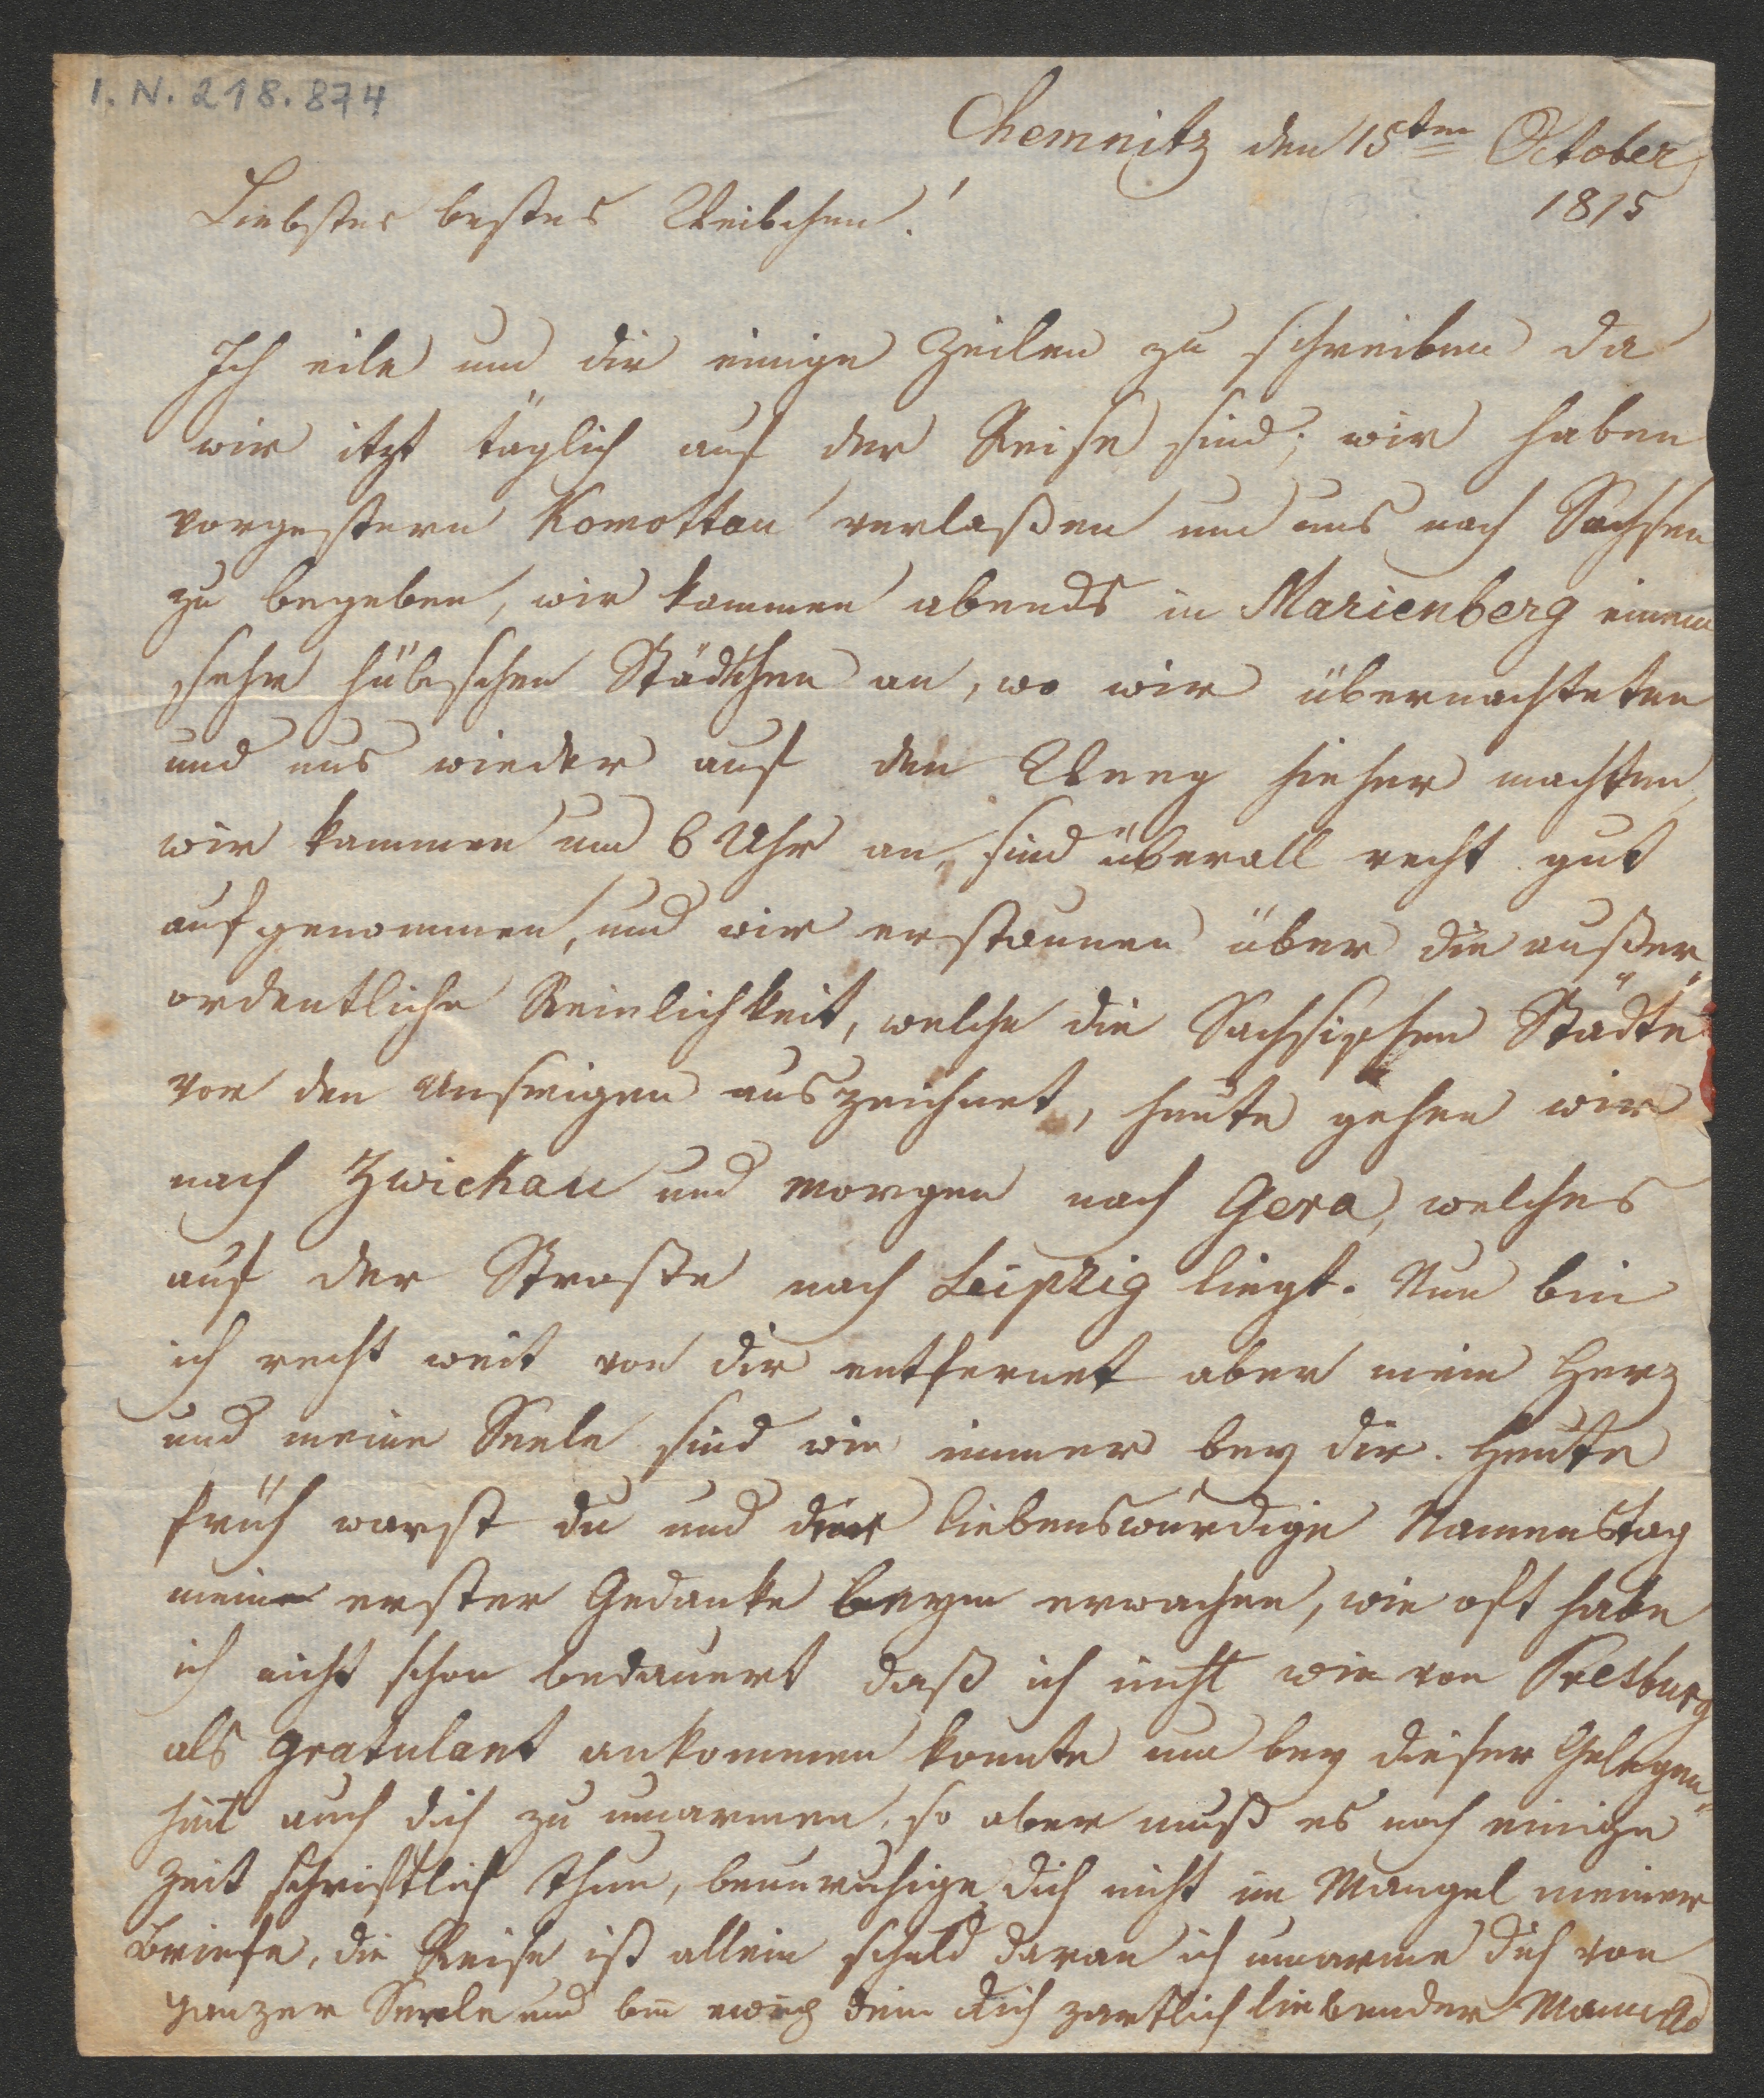 I. N. 218.874
Chemnitz den 15ten October
1815
Liebstes bestes Weibchen!
Ich eile um dir einige Zeilen zu schreiben da
wir itzt täglich auf der Reise sind; wir haben
vorgestern Komottau verlaßen um uns nach Sachsen
zu begeben, wir kammen abends in Marienberg einem
sehr hübschen Städtchen an, wo wir übernachteten
und uns wieder auf den Weeg hieher machten,
wir kammen um 6 Uhr an, sind überall recht gut
aufgenommen, und wir erstaunen über die außer
ordentliche Reinlichkeit, welche die Sachsischen Städte
vor den Unsrigen auszeichnet, heute gehen wir
nach Zwickau und morgen nach Gera, welches
auf der Straße nach Leipzig liegt. Nun bin
ich recht weit von dir entfernet aber mein Herz
und meine Seele sind wie immer bey dir. Heute
früh warst du und dein liebenswürdige Namenstag
mein erster Gedanke beym erwachen, wie oft habe
ich nicht schon bedauert daß ich nicht wie von Presburg
als gratulant ankommen konnte um bey dieser Gelegen-
heit auch dich zu umarmen, so aber muß es noch einige
Zeit schriftlich thun, beunruhige dich nicht im Mangel meiner
Briefe, die Reise ist allein schuld daran ich umarme dich von
ganzer Seele und bin ewig dein dich zartlich liebender Mann